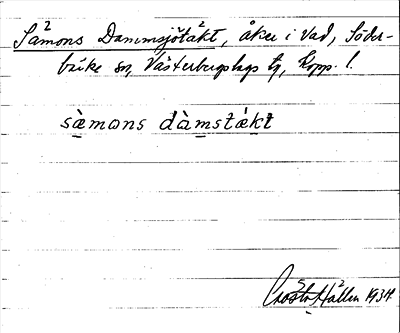 Sämons Dammsjötäkt, åker i Vad, Söder-
bärke sn, Västerbergslags tg, Kopp. l.
sæmons dàmstækt
Hållen 1934.